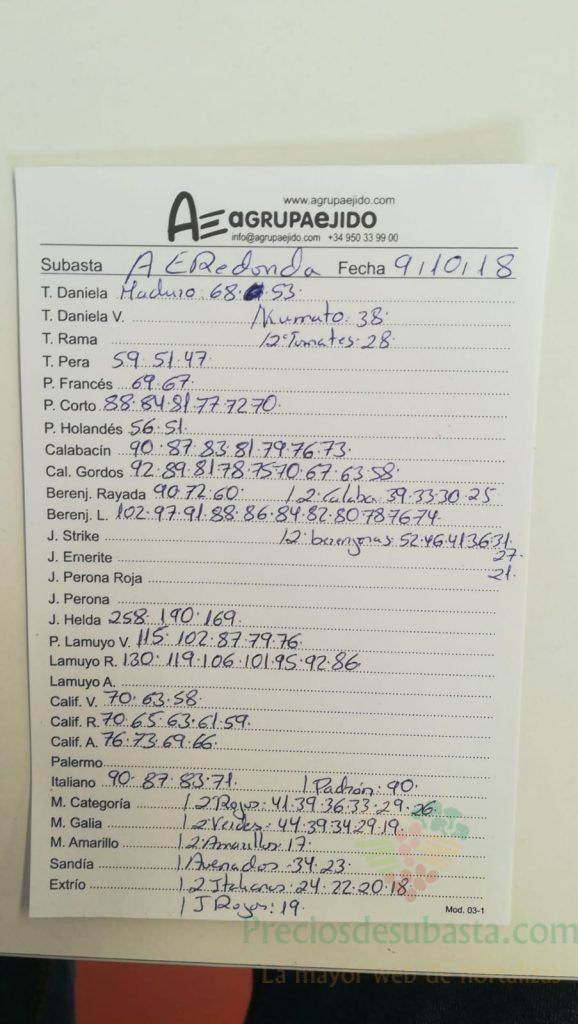 www.agrupaejido.com
AE AGRUPAEJIDO
info@agrupaejido.com +34 950 33 99 00
Subasta AE Redonda Fecha 9/10/18
T. Daniela Maduro: 68. 53
T. Daniela V. /Kumato: 38
T. Rama /2ªTomates: 28
T. Pera 59. 51. 47
P. Francés 69. 67
P. Corto 88. 84. 81 77 72 70.
P. Holandés 56. 51.
Calabacín 90. 87. 83. 81. 79. 76. 73.
Cal. Gordos 92. 89. 81 78. 75 70. 67. 63. 58.
Berenj. Rayada 90. 72. 60. /2ª Calaba. 39. 33. 30. 25
Berenj. L. 102. 97. 91. 88. 86. 84. 82. 80 78 76 74.
J. Strike /2ª berenjenas: 52. 46. 41 36 31
J. Emerite 27.
J. Perona Roja 21.
J. Perona
J. Helda 258. 190. 169.
P. Lamuyo V. 115. 102. 87. 79. 76
Lamuyo R. 130. 119. 106. 101. 95. 92. 86
Lamuyo A.
Calif. V. 70. 63. 58
Calif. R. 70. 65. 63. 61. 59.
Calif. A. 76. 73. 69. 66.
Palermo
Italiano 90. 87. 83. 71. / Padrón: 90.
M. Categoría /2ª Rojos: 41. 39. 36. 33. 29. 26
M. Galia /2ª Verdes: 44. 39. 34 29. 19.
M. Amarillo /2ª Amarillos: 17.
Sandía / 34. 23.
Extrío /2ª Italianos: 24. 22. 20. 18
/ J Rojos: 19.
Mod. 03-1
Preciosdesubasta.com
La mayor web de hortalizas